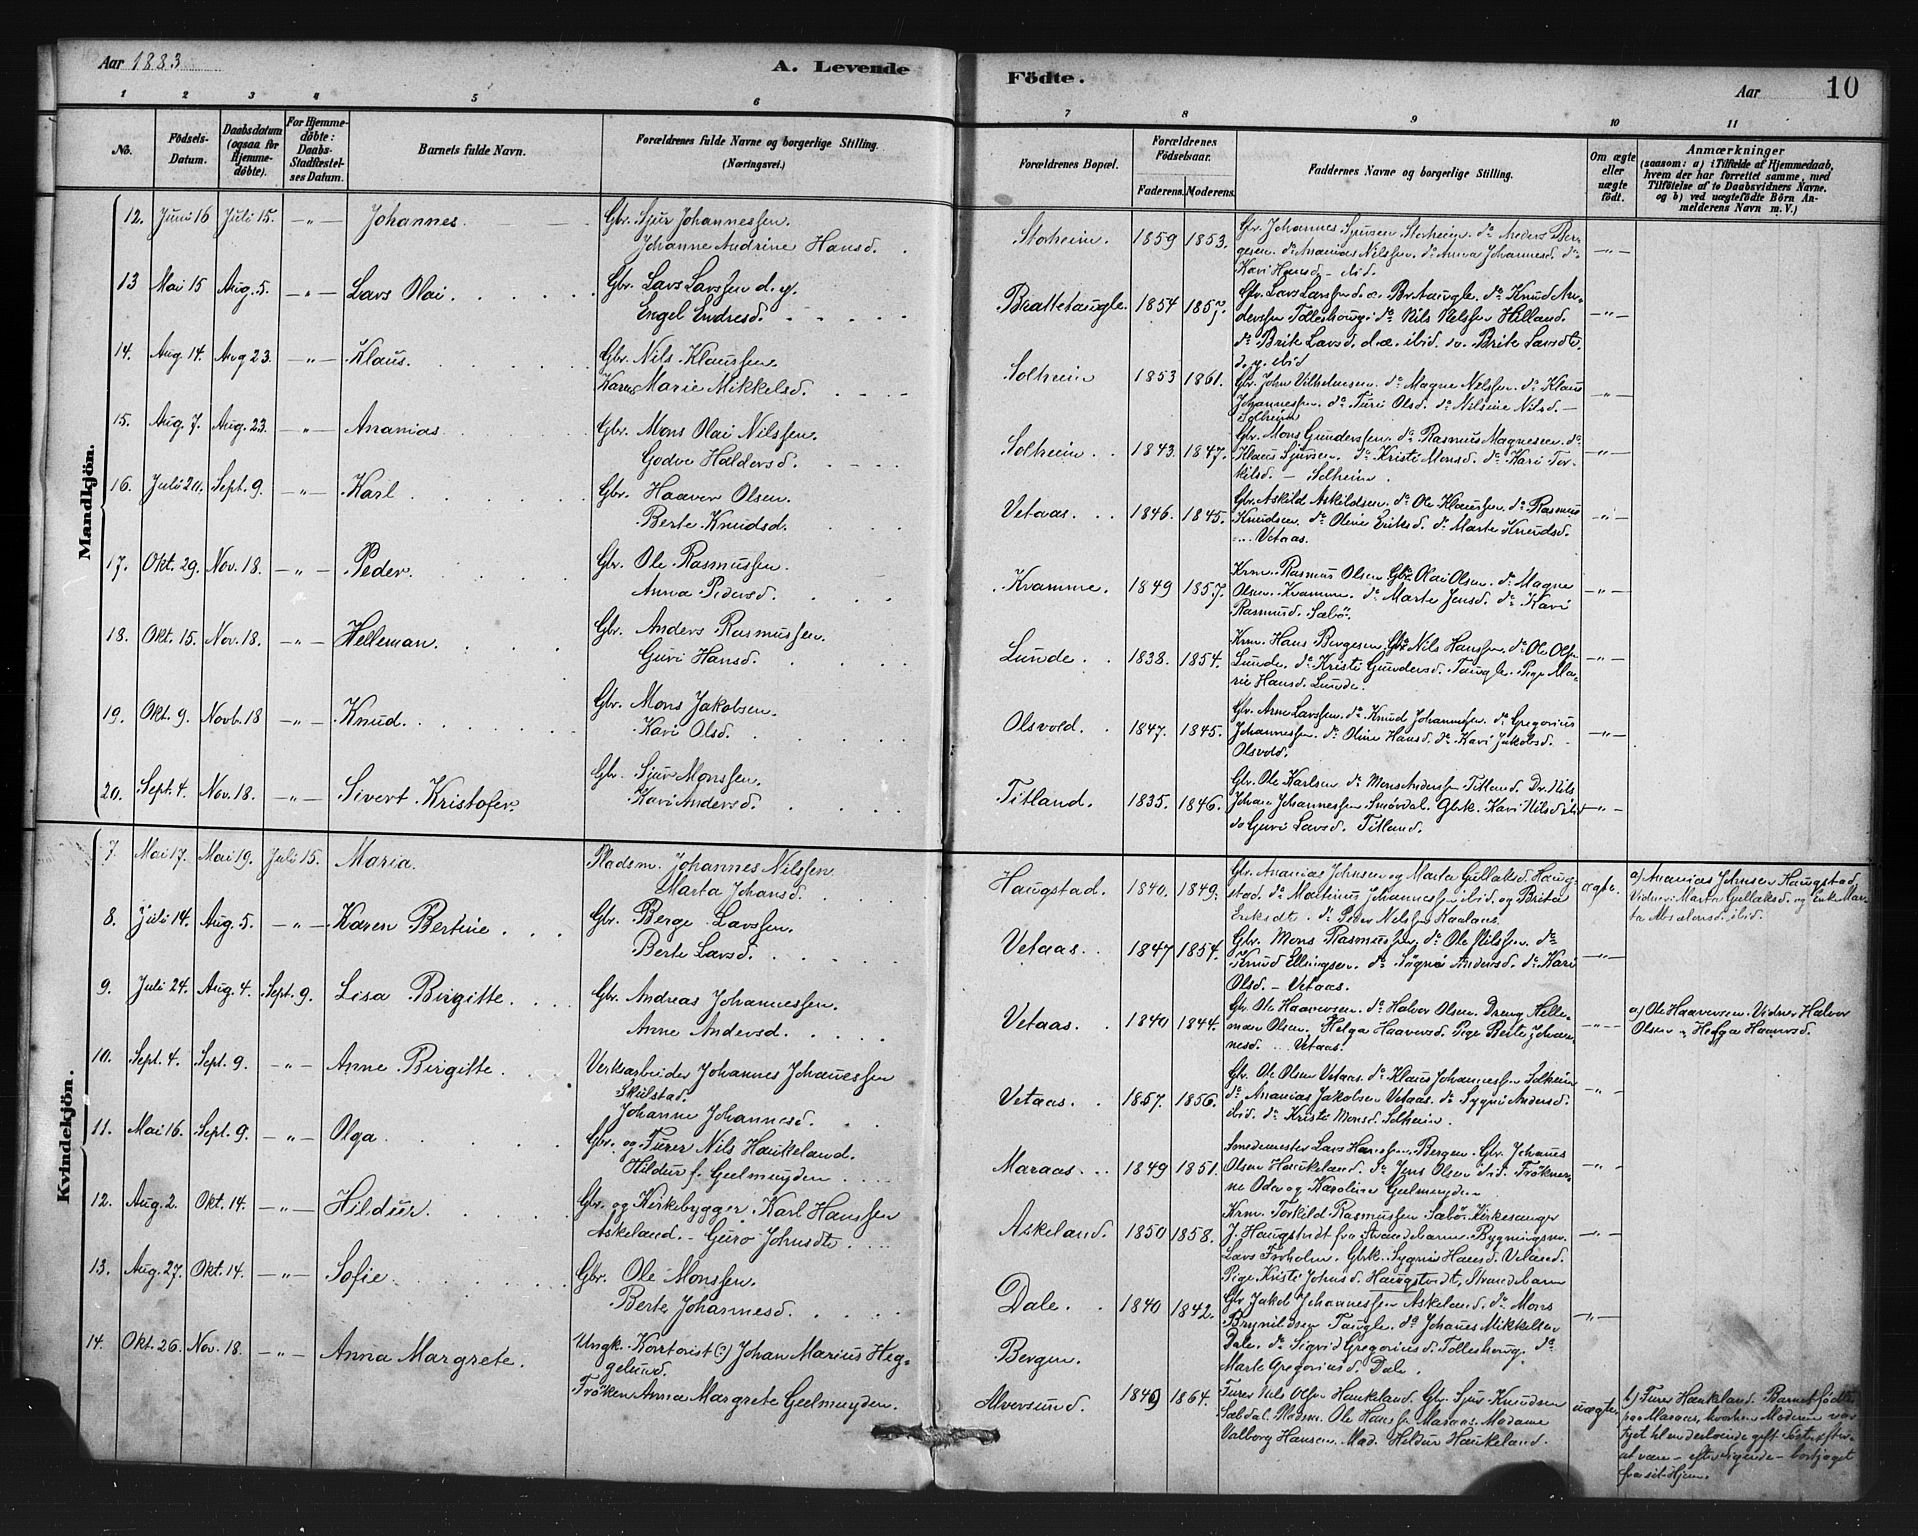 Aar 1883
A. Levende
Födte.
Aar
10
1 2 3 4 5 6 7 8 9 10 11
No.
Födsels-
Datum.
Daabsdatum
(ogsaa for
Hjemme-
döbte).
For Hjemme-
döbte:
Daabs-
Stadfæstel-
ses Datum.
Barnets fulde Navn.
Forældrenes fulde Navne og borgerlige Stilling.
(Næringsvei.)
Forældrenes Bopæl.
Forældrenes
Födselsaar.
Faderens. Moderens.
Faddernes Navne og borgerlige Stilling.
Om ægte
eller
uægte
födt.
Anmærkninger
(saasom: a) i Tilfælde af Hjemmedaab,
hvem der har forrettet samme, med
Tilföielse af to Daabsvidners Navne.
og b) ved uægtefödte Börn An-
melderens Navn m.V.)
Mandkjön.
12. Juni 16 Juli 15. –„– Johannes. Gbr. Sjur Johannessen.
Johanne Andrine Hansd.
Storheim. 1859 1853. Gbr. Johannes Sjursen Storheim. do Anders Ber-
gesen. do Ananias Nilssen. do Anna Johannesd. do
Kari Hansd – ibid. –„–
13 Mai 15 Aug. 5. –„– Lars Olai. Gbr. Lars Larssen d. y.
Engel Endresd.
Brattetaugle. 1854 1857. Gbr. Lars Larssen d. æ. Br.taugle. do Knud An-
derssen Tolleshoug. do Nils Nilssen Hilland.
do Brite Larsd. d. æ. ibid. do Brite Larsdt.
d. y. ibid –„–
14. Aug. 14. Aug 23. –„– Klaus. Gbr. Nils Klaussen
Karen Marie Mikkelsd.
Solheim 1853 1861. Gbr. John Vilhelmsen. do Magne Nilssen. do Klaus
Johannessen. do Turi Olsd. do Nilsine Nilsd. –
Solheim –„–
15. Aug. 7. Aug. 23. –„– Ananias Gbr. Mons Olai Nilssen.
Godve Haldorsd.
Solheim. 1843. 1847. Gbr. Mons Gunderssen. do Rasmus Magnesen. do
Klaus Sjursen. do Kristi Monsd. do Kari Tor-
kilsd. – Solheim. –„–
16. Juli 20. Sept. 9. –„– Karl Gbr. Haaver Olsen.
Berte Knudsd.
Vetaas. 1846. 1845. Gbr. Askild Askildsen. do Ole Klaussen. do Rasmus
Knudsen. do Oline Eriksd. do Marte Knudsd.
Vetaas. –„–
17. Okt. 29. Nov. 18. –„– Peder. Gbr. Ole Rasmussen.
Anna Pedersd.
Kvamme. 1849 1857. Krm. Rasmus Olsen. Gbr. Olai Olsen. do Magne
Olsen. Kvamme. do Marte Jensd. do Kari
Rasmusd. Sæbö. –„–
18. Okt. 15. Nov. 18. –„– Helleman. Gbr. Anders Rasmussen.
Guri Hansd.
Lunde. 1838. 1854. Krm. Hans Bergesen. Gbr. Nils Hanssen. do Ole Olsen
Lunde. do Kristi Gundersd. Taugle. Pige Ma-
rie Hansd. Lunde. –„–
19. Okt. 9. Novb. 18 –„– Knud. Gbr. Mons Jakobsen.
Kari Olsd.
Olsvold. 1847. 1845. Gbr. Arne Larssen. do Knud Johannessen. do Gregorius
Johannessen. do Oline Hansd. do Kari Jakobsd. –
Olsvold. –„–
20. Sept. 4. Nov. 18. –„– Sivert Kristofer. Gbr. Sjur Monssen.
Kari Andersd.
Titland. 1835. 1846. Gbr. Ole Karlsen do Mons Anderssen Titland. Dr. Nils
Johan Johannessen Smördal. Gbrk. Kari Nilsd ibid
do Guri Larsd. Titland. –„–
Kvindekjön.
7. Mai 17. Mai 19. Juli 15. Maria. Pladsm. Johannes Nilssen
Marta Johansd.
Haugstad. 1840. 1849. Gbr. Ananias Johnsen og Marta Gullaksd. Haug-
stad. do Martinus Johannessen ibid. og Brita
Eriksdt. do Peder Nilssen Kaaland. ægte. a) Ananias Johnsen Haugstad.
Vidner: Marta Gullaksd. og Enke Mar-
ta Absalonsd. ibid.
8. Juli 14. Aug. 5. –„– Karen Bertine. Gbr. Berge Larssen.
Berte Larsd.
Vetaas. 1847 1854. Gbr. Mons Rasmussen. do Ole Nilssen. do
Knud Ellingsen. do Sygni Andersd. do Kari
Olsd. – Vetaas. –„–
9. Juli 24. Aug. 4. Sept. 9. Lisa Birgitte. Gbr. Andreas Johannessen.
Anne Andersd.
Vetaas. 1840 1844. Gbr. Ole Haaversen. do Halvor Olsen. Dreng Helle-
man Olsen. Helga Haaversd. Pige Berte Johan-
nesd. Vetaas. –„– a) Ole Haaversen. Vidner: Halvor
Olsen og Helga Haaversd.
10. Sept. 4. Sept. 9. –„– Anne Birgitte. Verksarbeider Johannes Johanessen
Skulstad.
Johanne Johannesd.
Vetaas. 1857. 1856. Gbr. Ole Olsen Vetaas. do Klaus Johannessen Solheim
do Ananias Jakobsen Vetaas. do Sygni Andersd.
ibid. do Kristi Monsd. Solheim. –„–
11. Mai 16. Sept. 9. –„– Olga Gbr. og Furer Nils Haukeland.
Hildur f. Geelmuyden
Maraas. 1849 1851. Smedemester Lars Hanssen, Bergen. Gbr. Johanes
Olsen Haukeland. do Jens Olsen ibid. Frökner-
ne Oda og Karoline Geelmuyden –„–
12. Aug. 2. Okt. 14. –„– Hildur. Gbr. og Kirkebygger Karl Hanssen
Askeland. – Guro Johnsdt.
Askeland. 1850 1858. Krm. Torkild Rasmussen Sæbö. Kirkesanger
J. Haugstvedt fra Strandebarm. Bygningsm.
Lars Froholm. Gbrk. Sygni Hansd. Veland.
Pige Kristi Johnsd. Haugstvedt, Strandebarm –„–
13. Aug. 27. Okt. 14. –„– Sofie. Gbr. Ole Monssen.
Berte Johannesd.
Dale. 1840 1842. Gbr. Jakob Johannessen Askeland. do Mons
Brynildsen Taugle. do Johanes Mikkelsen
Dale. do Sigrid Gregoriusd. Tolleshoug. do
Marte Gregoriusd. Dale. –„–
14. Okt. 26. Nov. 18. –„– Anna Margrete. Ungk. Kontorist (?) Johan Marius Heg-
gelund.
Fröken Anna Margrete Geelmuyden.
Bergen.
Alversund. 1849 1864. Furer Nils Olsen Haukeland. Gbr. Sjur Knudsen
Sæbdal. Pladsm. Ole Hanssen Maraas. Madame
Valborg Hansen. Mad. Hildur Haukeland. uægte. b) Furer Haukeland. Barnet födtes
paa Maraas, hvorhen Moderen var
tyet til en derboende gift Söster, efter
at være – eftersigende – bortjaget
fra sit Hjem.